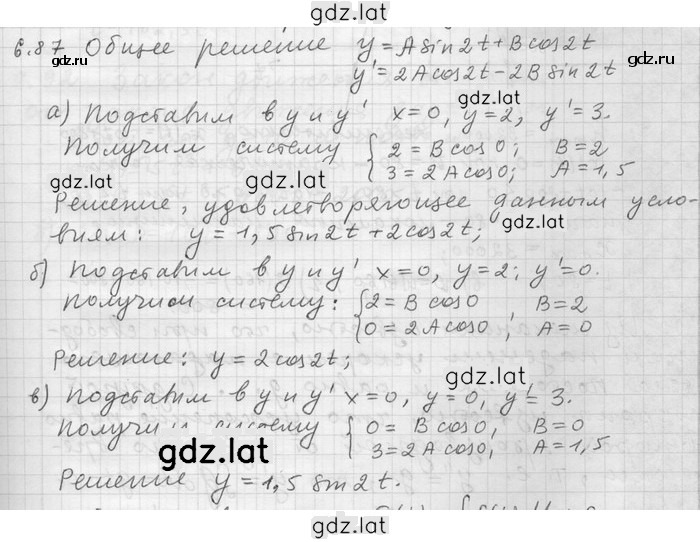 gdz.lat
6.87 Общее решение y=Asin2t+Bcos2t
y'=2Acos2t-2Bsin2t
gdz.lat
а) Подставим в y и y' x=0, y=2, y'=3.
Получим систему { 2=Bcos0; B=2
3=2Acos0; A=1,5
gdz.lat
Решение, удовлетворяющее данным усло-
gdz.lat
виям: y=1,5sin2t+2cos2t;
б) Подставим в y и y' x=0, y=2; y'=0.
Получим систему: { 2=Bcos0 B=2
0=2Acos0, A=0
Решение: y=2cos2t;
gdz.lat
в) Подставим в y и y' x=0, y=0, y'=3.
Получим систему { 0=Bcos0, B=0
3=2Acos0; A=1,5
gdz.lat
gdz.lat
Решение y=1,5sin2t.
gdz.lat